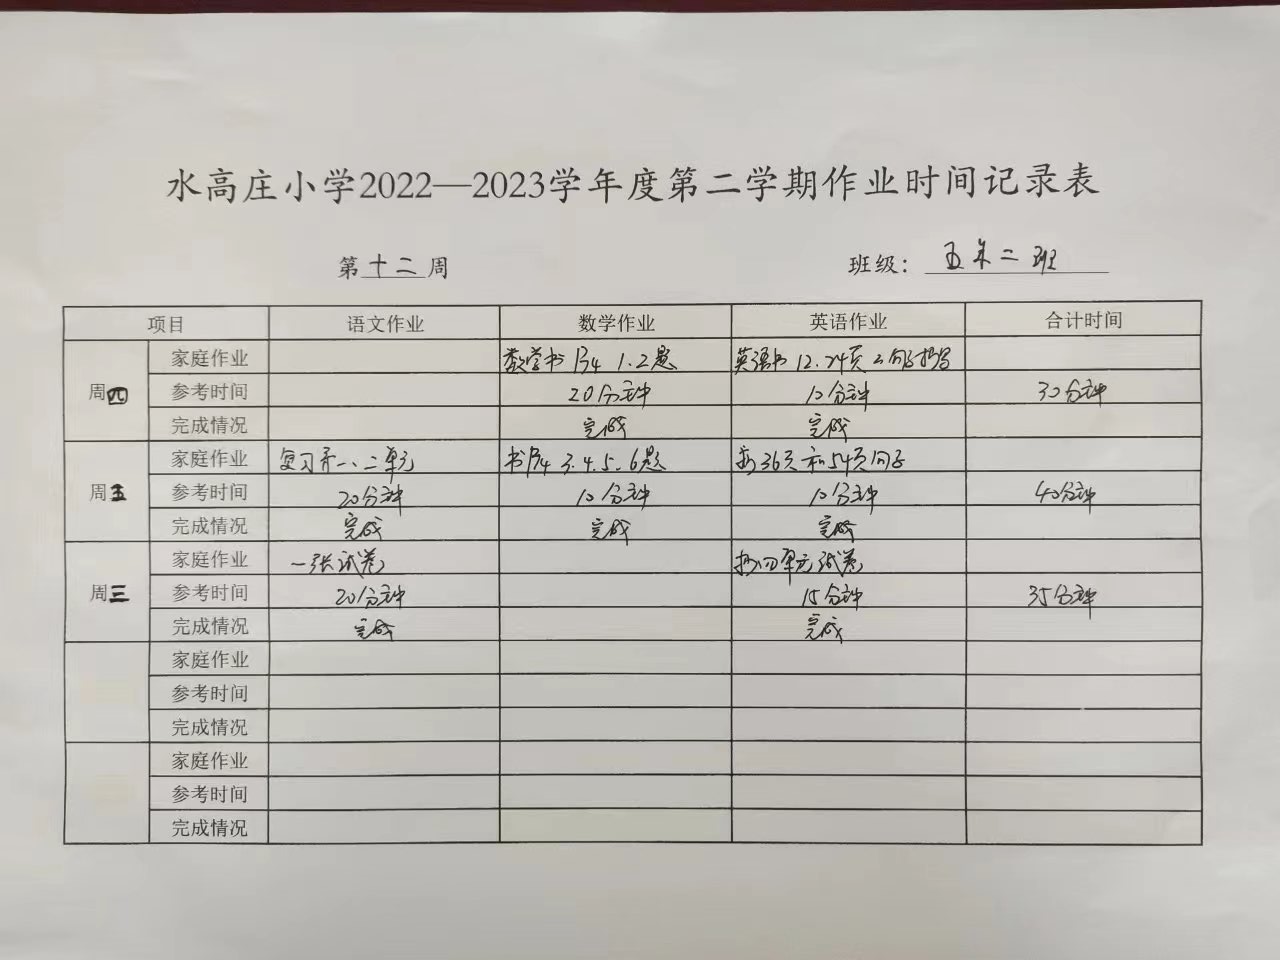 水高庄小学2022—2023学年度第二学期作业时间记录表
第 十二 周 班级： 五年二班
项目 语文作业 数学作业 英语作业 合计时间
周四 家庭作业 数学书 P34 1.2题 英语书 12.24页
参考时间 20分钟 10分钟 30分钟
完成情况 完成 完成
周五 家庭作业 复习 一、二单元 书P34 3.4.5.6题 36页和54页句子
参考时间 20分钟 10分钟 10分钟 40分钟
完成情况 完成 完成 完成
周三 家庭作业 一张试卷 四单元试卷
参考时间 20分钟 15分钟 35分钟
完成情况 完成 完成
家庭作业
参考时间
完成情况
家庭作业
参考时间
完成情况